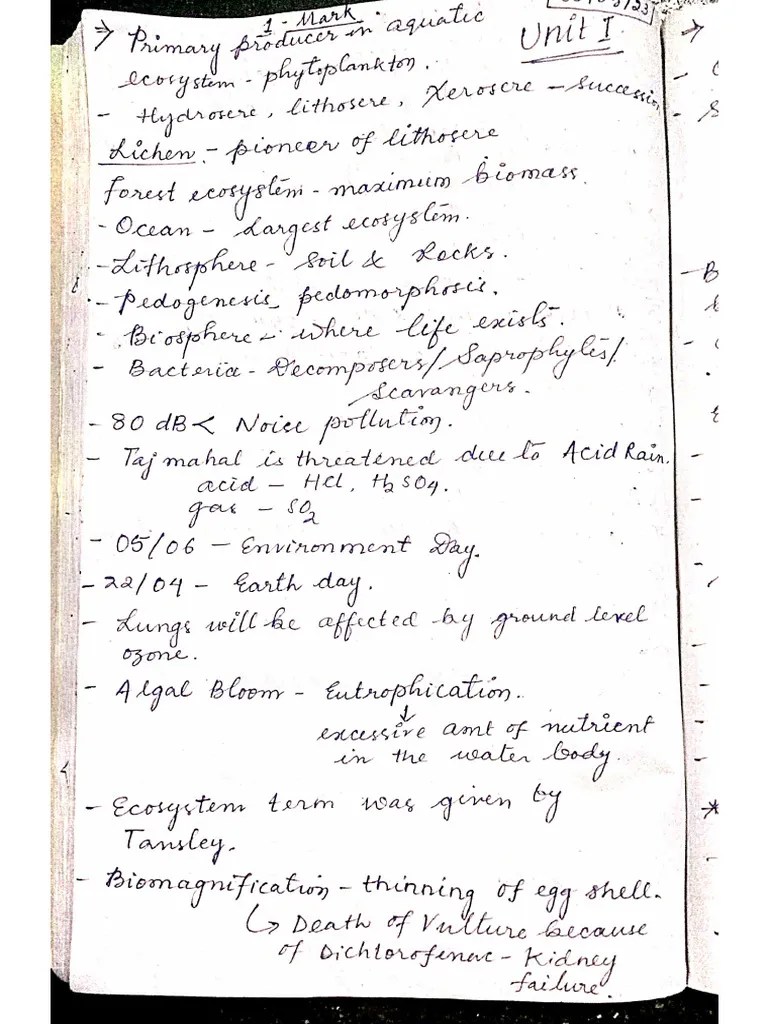 1 - Mark
Unit I
→ Primary producer in aquatic
ecosystem - phytoplankton.
- Hydrosere, lithosere, Xerosere - succession
Lichen - pioneer of lithosere
Forest ecosystem - maximum biomass.
- Ocean - Largest ecosystem.
- Lithosphere - Soil & Rocks.
- Pedogenesis, pedomorphosis.
- Biosphere - where life exists.
- Bacteria - Decomposers/Saprophytes/
Scavangers.
- 80 dB < Noise pollution.
- Taj mahal is threatened due to Acid Rain.
acid - HCl, H2SO4.
gas - SO2
- 05/06 - Environment Day.
- 22/04 - Earth day.
- Lungs will be affected by ground level
ozone.
- Algal Bloom - Eutrophication.
↓
excessive amt of nutrient
in the water body.
- Ecosystem term was given by
Tansley.
- Biomagnification - thinning of egg shell.
↳ Death of Vulture because
of Dichlorofenac - Kidney
failure.